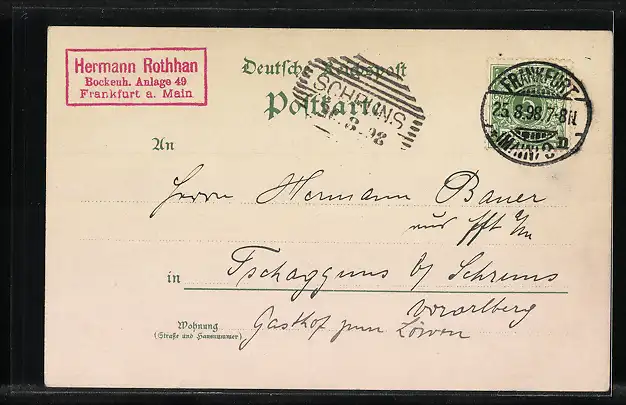 Hermann Rothhan
Bockenh. Anlage 49
Frankfurt a. Main
Deutsche Reichspost
Postkarte
SCHRUNS
8 98
FRANKFURT
25.8.98 7-8N.
(MAIN)
An
Herrn Hermann Bauer
aus Fft a/m
in Tschagguns b/ Schruns
Vorarlberg
Wohnung
(Straße und Hausnummer)
Gasthof zum Löwen